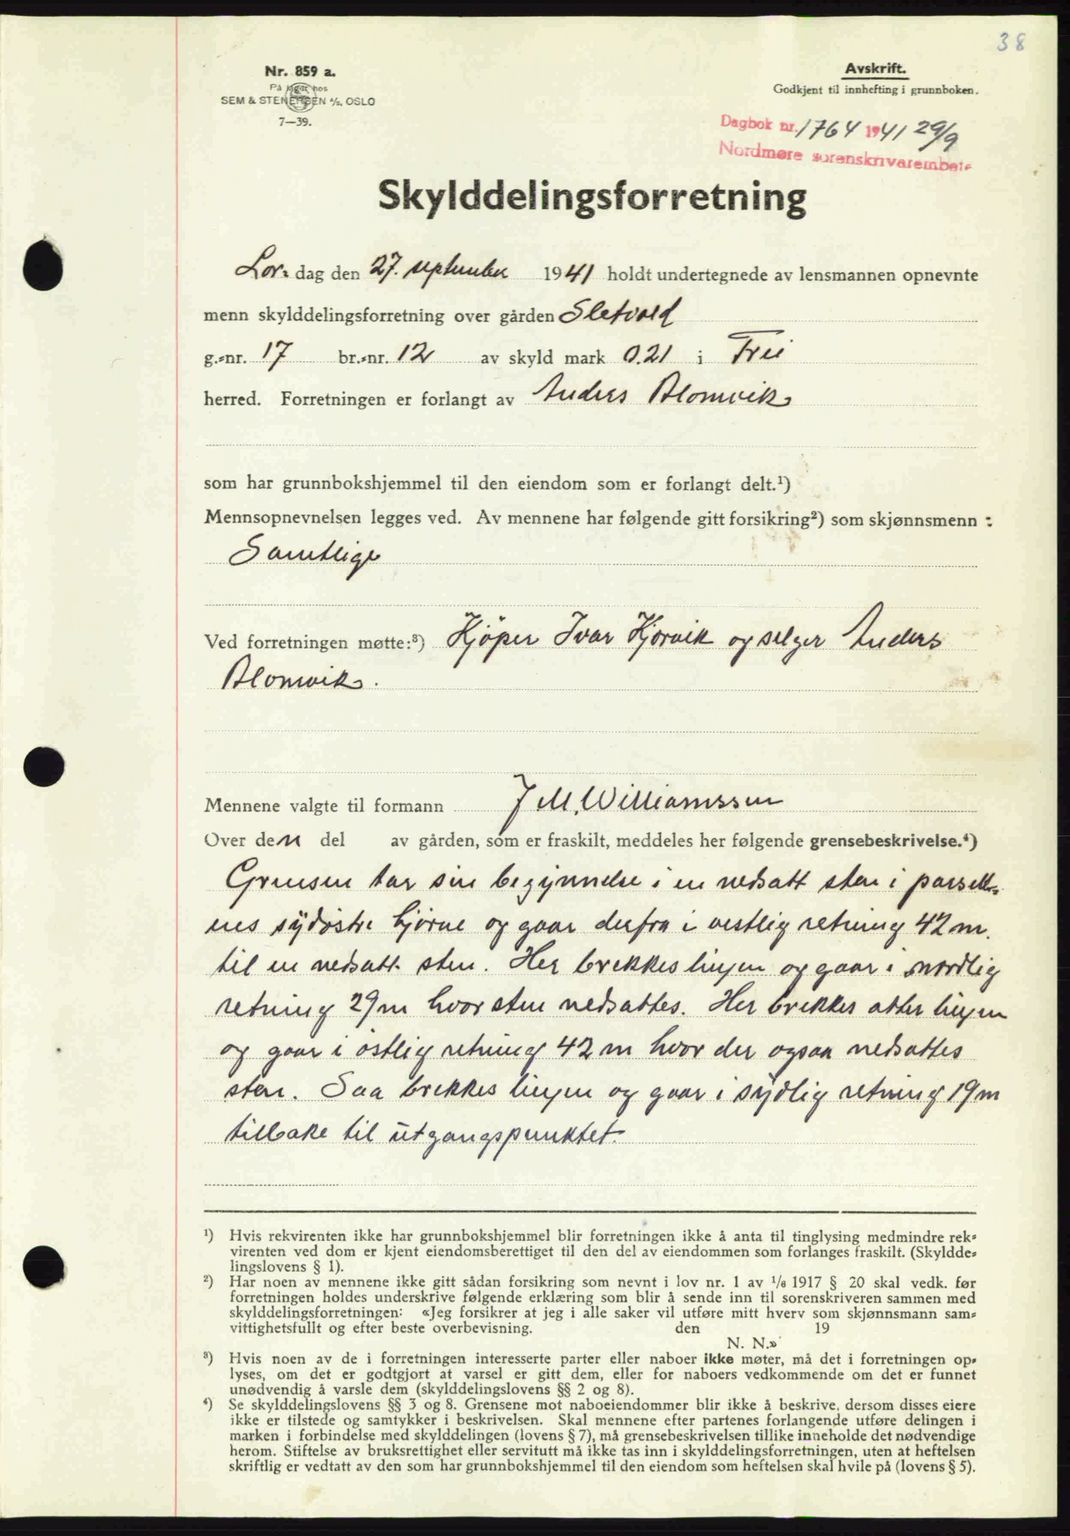 38
Nr. 859 a.
På lager hos
SEM & STENERSEN A/S. OSLO
7—39.
Avskrift.
Godkjent til innhefting i grunnboken.
Dagbok nr. 1764 1941 29/9
Nordmøre sorenskrivarembete
Skylddelingsforretning
Lør- dag den 27. september 1941 holdt undertegnede av lensmannen opnevnte
menn skylddelingsforretning over gården Sletvold
g.-nr. 17 br.-nr. 12 av skyld mark 0.21 i Frei
herred. Forretningen er forlangt av Anders Blomvik
som har grunnbokshjemmel til den eiendom som er forlangt delt.¹)
Mennsopnevnelsen legges ved. Av mennene har følgende gitt forsikring²) som skjønnsmenn :
Samtlige
Ved forretningen møtte:³) Kjöper Ivar Kjorvik og selger Anders
Blomvik.
Mennene valgte til formann J M. Williamssen
Over den del av gården, som er fraskilt, meddeles her følgende grensebeskrivelse.⁴)
Grensen tar sin begynnelse i en nedsatt sten i parsell-
nes sydöstre hjörne og gaar derfra i vestlig retning 42 m.
til en nedsatt sten. Her brekkes linjen og gaar i nordlig
retning 29 m hvor sten nedsattes. Her brekkes atter linjen
og gaar i östlig retning 42 m hvor der ogsaa nedsattes
sten. Saa brekkes linjen og gaar i sydlig retning 19 m
tilbake til utgangspunktet.
¹) Hvis rekvirenten ikke har grunnbokshjemmel blir forretningen ikke å anta til tinglysing medmindre rek-
virenten ved dom er kjent eiendomsberettiget til den del av eiendommen som forlanges fraskilt. (Skyldde-
lingslovens § 1).
²) Har noen av mennene ikke gitt sådan forsikring som nevnt i lov nr. 1 av 1/6 1917 § 20 skal vedk. før
forretningen holdes underskrive følgende erklæring som blir å sende inn til sorenskriveren sammen med
skylddelingsforretningen: «Jeg forsikrer at jeg i alle saker vil utføre mitt hverv som skjønnsmann sam-
vittighetsfullt og efter beste overbevisning. den 19
N. N.»
³) Hvis noen av de i forretningen interesserte parter eller naboer ikke møter, må det i forretningen op-
lyses, om det er godtgjort at varsel er gitt dem, eller for naboers vedkommende om det er funnet
unødvendig å varsle dem (skylddelingslovens §§ 2 og 8).
⁴) Se skylddelingslovens §§ 3 og 8. Grensene mot naboeiendommer blir ikke å beskrive, dersom disses eiere
ikke er tilstede og samtykker i beskrivelsen. Skal mennene efter partenes forlangende utføre delingen i
marken i forbindelse med skylddelingen (lovens § 7), må grensebeskrivelsen tillike inneholde det nødvendige
herom. Stiftelse av bruksrettighet eller servitutt må ikke tas inn i skylddelingsforretningen, uten at heftelsen
skriftlig er vedtatt av den som har grunnbokshjemmel til den eiendom som heftelsen skal hvile på (lovens § 5).